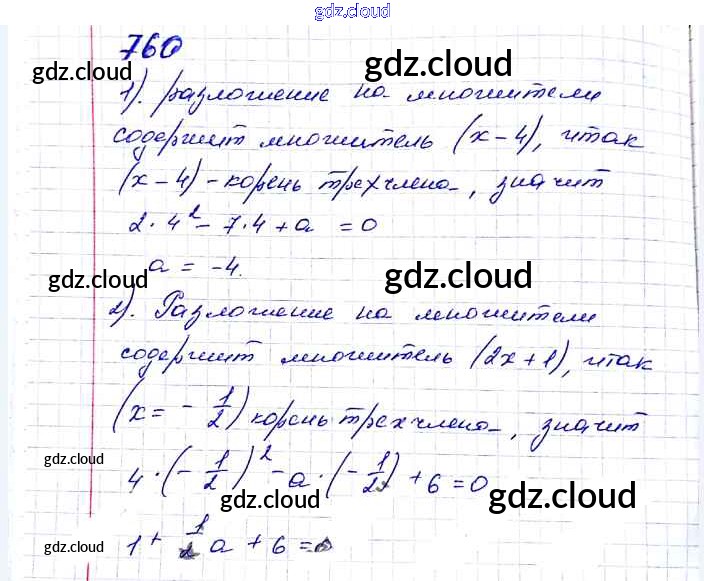 gdz.cloud
760
gdz.cloud
gdz.cloud
1). разложение на множители
содержит множитель (x-4), итак
(x-4) - корень трехчлена, значит
2·4² - 7·4 + a = 0
gdz.cloud
gdz.cloud
a = -4.
2). Разложение на множители
содержит множитель (2x+1), итак
(x = -1/2) корень трехчлена, значит
gdz.cloud
4·(-1/2)² - a·(-1/2) + 6 = 0
gdz.cloud
gdz.cloud
gdz.cloud
1 + 1/2 a + 6 = 0